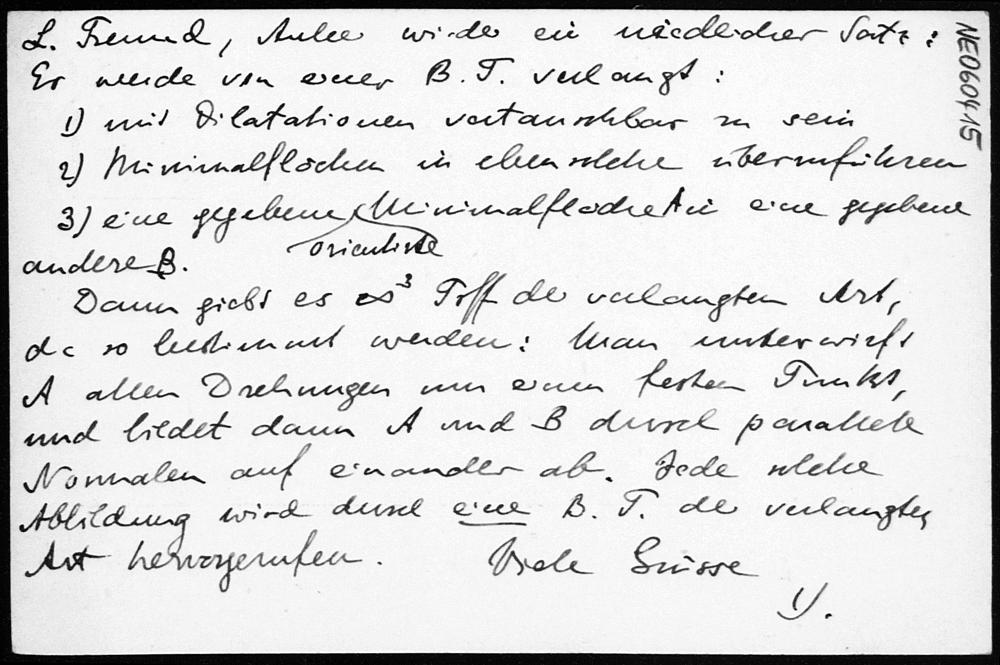 L. Freund, Anbei wieder ein niedlicher Satz:
Es werde von einer B. T. verlangt:
1) mit Dilatationen vertauschbar zu sein
2) Minimalflächen in ebensolche überzuführen
3) eine gegebene Minimalfläche A in eine gegebene
orientierte
andere B.
Dann giebt es ∞³ Trff der verlangten Art,
die so bestimmt werden: Man unterwirft
A allen Drehungen um einen festen Punkt,
und bildet dann A und B durch parallele
Normalen auf einander ab. Jede solche
Abbildung wird durch eine B. T. der verlangten
Art hervorgerufen. Viele Grüsse
NE060415